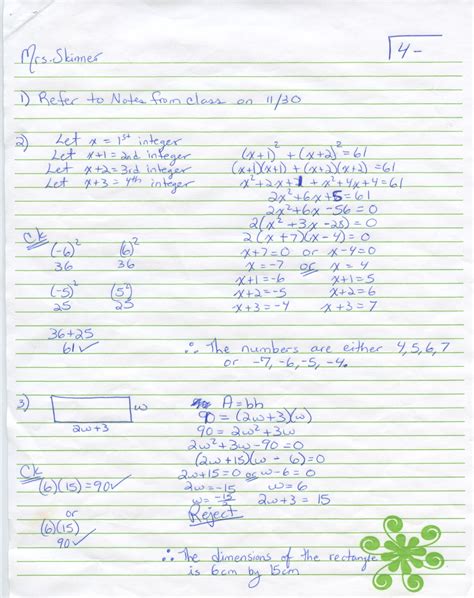 Mrs. Skinner
4-
1) Refer to Notes from class on 11/30
2) Let x = 1st integer
Let x+1 = 2nd integer
Let x+2 = 3rd integer
Let x+3 = 4th integer
(x+1)² + (x+2)² = 61
(x+1)(x+1) + (x+2)(x+2) = 61
x²+2x+1 + x²+4x+4 = 61
2x²+6x+5 = 61
2x²+6x-56 = 0
2(x²+3x-28) = 0
2(x+7)(x-4) = 0
x+7=0 or x-4=0
x=-7 or x=4
x+1=-6 x+1=5
x+2=-5 x+2=6
x+3=-4 x+3=7
Ck
(-6)² (6)²
36 36
(-5)² (5)²
25 25
36+25
61 ✓
∴ The numbers are either 4, 5, 6, 7
or -7, -6, -5, -4.
3) w
2w+3
A=bh
90 = (2w+3)(w)
90 = 2w²+3w
2w²+3w-90=0
(2w+15)(w-6)=0
2w+15=0 or w-6=0
2w=-15 w=6
w=-15/2 2w+3=15
Reject
Ck
(6)(15)=90 ✓
or
(6)(15)
90 ✓
∴ The dimensions of the rectangle
is 6cm by 15cm